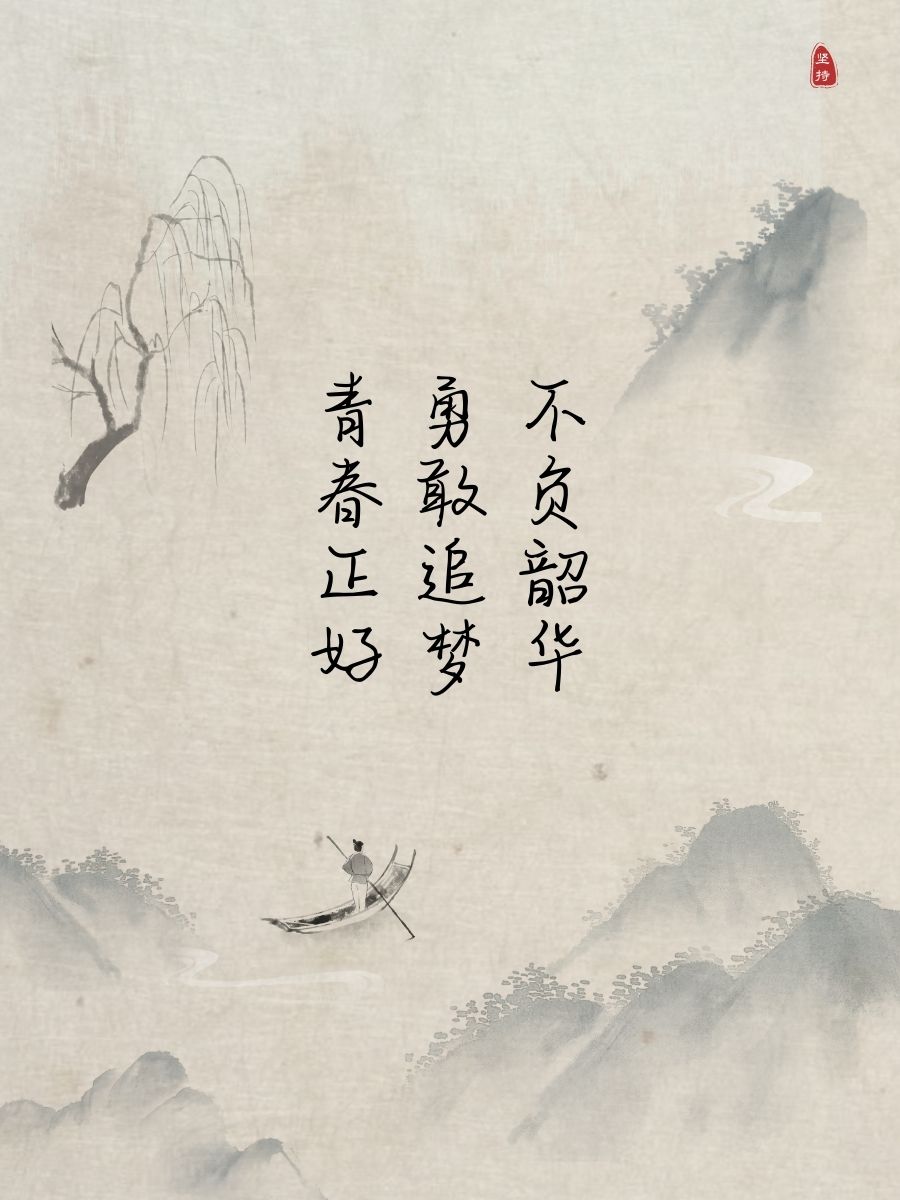 坚持
不负韶华
勇敢追梦
青春正好